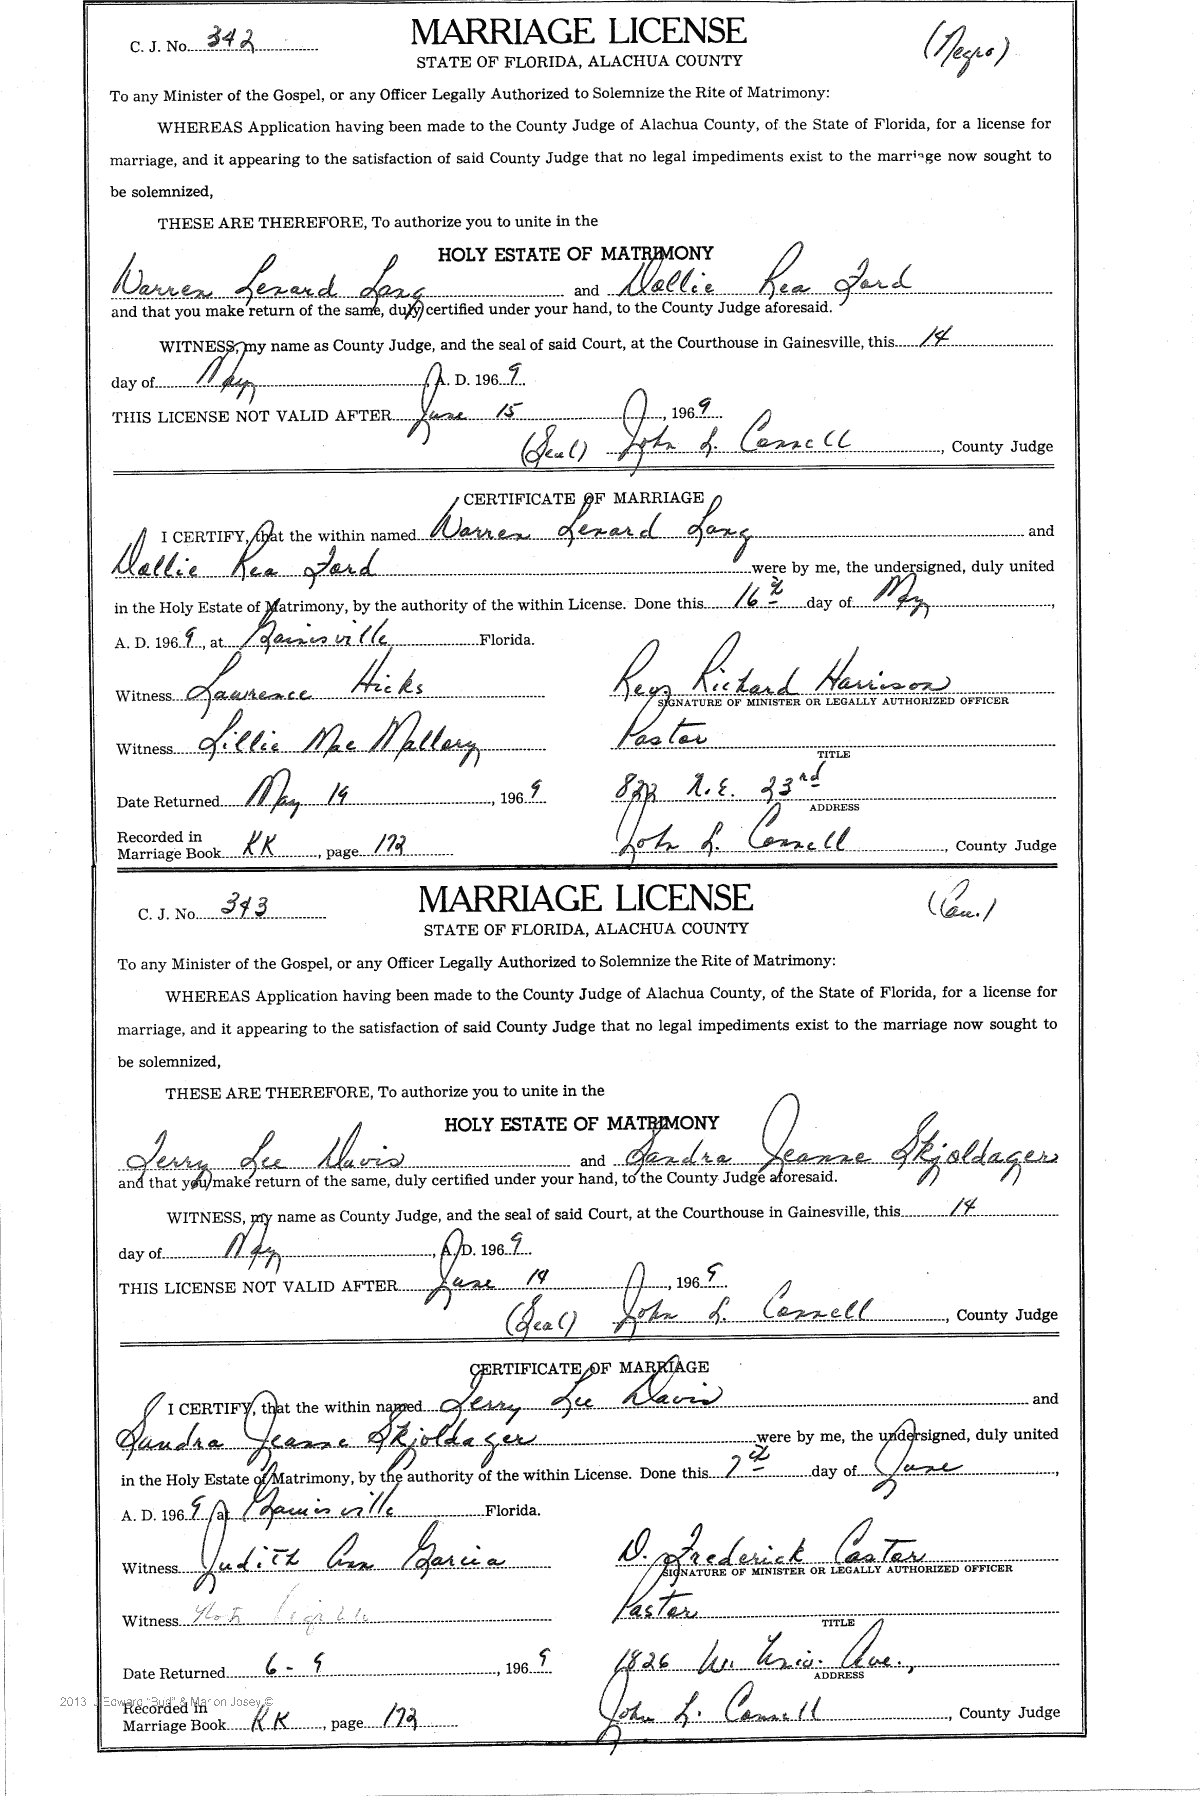 C. J. No. 342 MARRIAGE LICENSE (Negro)
STATE OF FLORIDA, ALACHUA COUNTY
To any Minister of the Gospel, or any Officer Legally Authorized to Solemnize the Rite of Matrimony:
WHEREAS Application having been made to the County Judge of Alachua County, of the State of Florida, for a license for
marriage, and it appearing to the satisfaction of said County Judge that no legal impediments exist to the marriage now sought to
be solemnized,
THESE ARE THEREFORE, To authorize you to unite in the
HOLY ESTATE OF MATRIMONY
Warren Lenard Lang and Dollie Rea Ford
and that you make return of the same, duly certified under your hand, to the County Judge aforesaid.
WITNESS, my name as County Judge, and the seal of said Court, at the Courthouse in Gainesville, this 14
day of May, A. D. 1969
THIS LICENSE NOT VALID AFTER June 15, 1969
(Seal) John L. Connell, County Judge
CERTIFICATE OF MARRIAGE
I CERTIFY, that the within named Warren Lenard Lang and
Dollie Rea Ford were by me, the undersigned, duly united
in the Holy Estate of Matrimony, by the authority of the within License. Done this 16th day of May,
A. D. 1969, at Gainisville Florida.
Witness Lawrence Hicks Rev. Richard Harrison
SIGNATURE OF MINISTER OR LEGALLY AUTHORIZED OFFICER
Witness Lillie Mae Mallory Pastor
TITLE
Date Returned May 19, 1969 822 N.E. 23rd
ADDRESS
Recorded in
Marriage Book KK, page 172 John L. Connell, County Judge
C. J. No. 343 MARRIAGE LICENSE (Cau.)
STATE OF FLORIDA, ALACHUA COUNTY
To any Minister of the Gospel, or any Officer Legally Authorized to Solemnize the Rite of Matrimony:
WHEREAS Application having been made to the County Judge of Alachua County, of the State of Florida, for a license for
marriage, and it appearing to the satisfaction of said County Judge that no legal impediments exist to the marriage now sought to
be solemnized,
THESE ARE THEREFORE, To authorize you to unite in the
HOLY ESTATE OF MATRIMONY
Jerry Lee Davis and Sandra Jeanne Skjoldager
and that you make return of the same, duly certified under your hand, to the County Judge aforesaid.
WITNESS, my name as County Judge, and the seal of said Court, at the Courthouse in Gainesville, this 14
day of May, A. D. 1969
THIS LICENSE NOT VALID AFTER June 14, 1969
(Seal) John L. Connell, County Judge
CERTIFICATE OF MARRIAGE
I CERTIFY, that the within named Jerry Lee Davis and
Sandra Jeanne Skjoldager were by me, the undersigned, duly united
in the Holy Estate of Matrimony, by the authority of the within License. Done this 7th day of June,
A. D. 1969, at Gainisville Florida.
Witness Judith Ann Garcia D. Frederick Castor
SIGNATURE OF MINISTER OR LEGALLY AUTHORIZED OFFICER
Witness Not legible Pastor
TITLE
Date Returned 6-9, 1969 1826 W. Univ. Ave.,
ADDRESS
2013 J Edward "Bud" & Marion Josey ©
Recorded in
Marriage Book KK, page 172 John L. Connell, County Judge